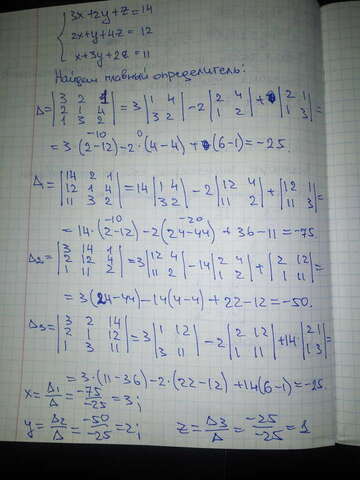 { 3x+2y+z=14
2x+y+4z=12
x+3y+2z=11
Найдем главный определитель:
Δ = |3 2 1; 2 1 4; 1 3 2| = 3|1 4; 3 2| - 2|2 4; 1 2| + |2 1; 1 3| =
= 3·(2-12)-2·(4-4)+(6-1)=-25.
Δ1 = |14 2 1; 12 1 4; 11 3 2| = 14|1 4; 3 2| - 2|12 4; 11 2| + |12 1; 11 3| =
= 14·(2-12)-2(24-44)+36-11=-75.
Δ2 = |3 14 1; 2 12 4; 1 11 2| = 3|12 4; 11 2| - 14|2 4; 1 2| + |2 12; 1 11| =
= 3(24-44)-14(4-4)+22-12=-50.
Δ3 = |3 2 14; 2 1 12; 1 3 11| = 3|1 12; 3 11| - 2|2 12; 1 11| + 14·|2 1; 1 3| =
= 3·(11-36)-2·(22-12)+14(6-1)=-25.
x = Δ1/Δ = -75/-25 = 3;
y = Δ2/Δ = -50/-25 = 2; z = Δ3/Δ = -25/-25 = 1